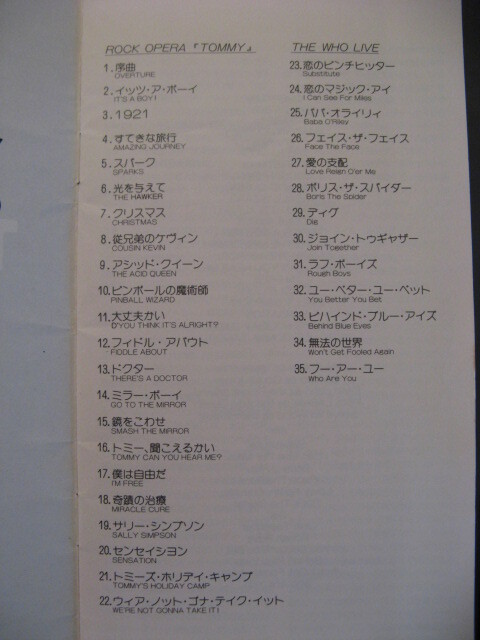 ROCK OPERA 『TOMMY』
1. 序曲
OVERTURE
2. イッツ・ア・ボーイ
IT'S A BOY!
3. 1921
4. すてきな旅行
AMAZING JOURNEY
5. スパーク
SPARKS
6. 光を与えて
THE HAWKER
7. クリスマス
CHRISTMAS
8. 従兄弟のケヴィン
COUSIN KEVIN
9. アシッド・クイーン
THE ACID QUEEN
10. ピンボールの魔術師
PINBALL WIZARD
11. 大丈夫かい
D'YOU THINK IT'S ALRIGHT?
12. フィドル・アバウト
FIDDLE ABOUT
13. ドクター
THERE'S A DOCTOR
14. ミラー・ボーイ
GO TO THE MIRROR
15. 鏡をこわせ
SMASH THE MIRROR
16. トミー、聞こえるかい
TOMMY CAN YOU HEAR ME?
17. 僕は自由だ
I'M FREE
18. 奇蹟の治療
MIRACLE CURE
19. サリー・シンプソン
SALLY SIMPSON
20. センセイション
SENSATION
21. トミーズ・ホリディ・キャンプ
TOMMY'S HOLIDAY CAMP
22. ウィア・ノット・ゴナ・テイク・イット
WE'RE NOT GONNA TAKE IT!
THE WHO LIVE
23. 恋のピンチヒッター
Substitute
24. 恋のマジック・アイ
I Can See For Miles
25. ババ・オライリィ
Baba O'Riley
26. フェイス・ザ・フェイス
Face The Face
27. 愛の支配
Love Reign O'er Me
28. ボリス・ザ・スパイダー
Boris The Spider
29. ディグ
Dig
30. ジョイン・トゥギャザー
Join Together
31. ラフ・ボーイズ
Rough Boys
32. ユー・ベター・ユー・ベット
You Better You Bet
33. ビハインド・ブルー・アイズ
Behind Blue Eyes
34. 無法の世界
Won't Get Fooled Again
35. フー・アー・ユー
Who Are You